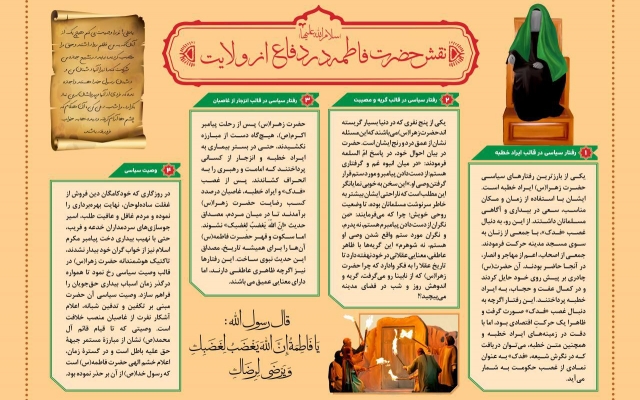 سلام‌الله‌علیها
نقش حضرت فاطمه در دفاع از ولایت
۱ رفتار سیاسی در قالب ایراد خطبه
یکی از بارزترین رفتارهای سیاسی
حضرت زهرا(س) ایراد خطبه است.
ایشان با استفاده از زمان و مکان
مناسب، سعی در بیداری و آگاهی
مسلمانان داشتند. از این رو، به دنبال
غصب «فدک»، با جمعی از زنان به
سوی مسجد مدینه حرکت فرمودند.
جمعی از اصحاب، اعم از مهاجر و انصار،
در آنجا حاضر بودند. آن حضرت(س)
چادری بر پیش روی خود حایل کردند
و در کمال عفت و حجاب، به ایراد
خطبه پرداختند. این رفتار اگرچه به
دنبال غصب «فدک» صورت گرفت و
ظاهرا یک حرکت اقتصادی بود، اما با
دقت در زمینه‌های ایراد خطبه و
همچنین متن خطبه، می‌توان دریافت
که در نگرش شیعه، «فدک» به عنوان
نمادی از غصب حکومت به شمار
می‌آید.
۲ رفتار سیاسی در قالب گریه و مصیبت
یکی از پنج نفری که در دنیا بسیار گریسته
اند حضرت زهرا(س) می‌باشند که این مسئله
نشان از عمق درد و رنج ایشان است. حضرت
در بیان احوال خود، در پاسخ ام سلمه
فرمودند: «در میان انبوه غم و گرفتاری
هستم از دست دادن پیامبر و مورد ستم قرار
گرفتن وصی او.» این سخن به خوبی نمایانگر
این مطلب است که ناراحتی ایشان بیشتر به
خاطر سرنوشت مسلمانان بوده، تا وضعیت
روحی خویش؛ چرا که می‌فرمایند: «من
نگران از دست دادن پیامبر هستم، نه پدرم،
و نگران مورد ستم واقع شدن وصی او
هستم، نه شوهرم.» این گریه‌ها با ظاهر
عاطفی، معنایی عقلانی در خود نهفته دارد تا
تاریخ عقلا را به فکر وادارد که چرا حضرت
زهرا(س) که از نابینا رو می‌گرفت، گریه و
اندوهش روز و شب در فضای مدینه
می‌پیچید؟!
۳ رفتار سیاسی در قالب انزجار از غاصبان
حضرت زهرا(س) پس از رحلت پیامبر
اکرم(ص)، هیچ‌گاه دست از مبارزه
نکشیدند، حتی در بستر بیماری به
ایراد خطبه و انزجار از کسانی
پرداختند که امامت و رهبری را به
انحراف کشاندند. پس از غصب
«فدک» و ایراد خطبه، غاصبان درصدد
کسب رضایت حضرت زهرا(س)
برآمدند تا در میان مردم، مصداق
حدیث «ان الله یغضب لغضبک» نشوند.
اما سکوت و قهر حضرت فاطمه(س)
آن‌ها را برای همیشه تاریخ، مصداق
این حدیث نبوی ساخت. این رفتارها
نیز اگرچه ظاهری عاطفی دارند، اما
دارای معنایی عمیق می باشند.
قال رسول الله:
یا فاطمة إن الله یغضب لغضبک
و یرضی لرضاک
۴ وصیت سیاسی
در روزگاری که خودکامگان دین فروش از
غفلت ساده‌لوحان، نهایت بهره‌برداری را
نموده و مردم غافل و عاقبت طلب، اسیر
جوسازی‌های سردمداران خدعه و فریب،
حتی با نهیب بیداری دخت پیامبر مکرم
اسلام نیز از خواب گران خود بیدار نشدند،
تاکتیک هوشمندانه حضرت زهرا(س) در
قالب وصیت سیاسی رخ نمود تا همواره
در گذر زمان اسباب بیداری حق‌جویان را
فراهم سازد. وصیت سیاسی آن حضرت
مبنی بر تکفین و تدفین شبانه، اعلام
آشکار نفرت از غاصبان منصب خلافت
است. وصیتی که تا قیام قائم آل
محمد(ص) نشان از مبارزۀ مستمر جبهۀ
حق علیه باطل است و در گسترۀ زمان،
اعلام خشم الهی حضرت فاطمه(س) است
که رسول خدا(ص) از آن بر حذر نموده بود.